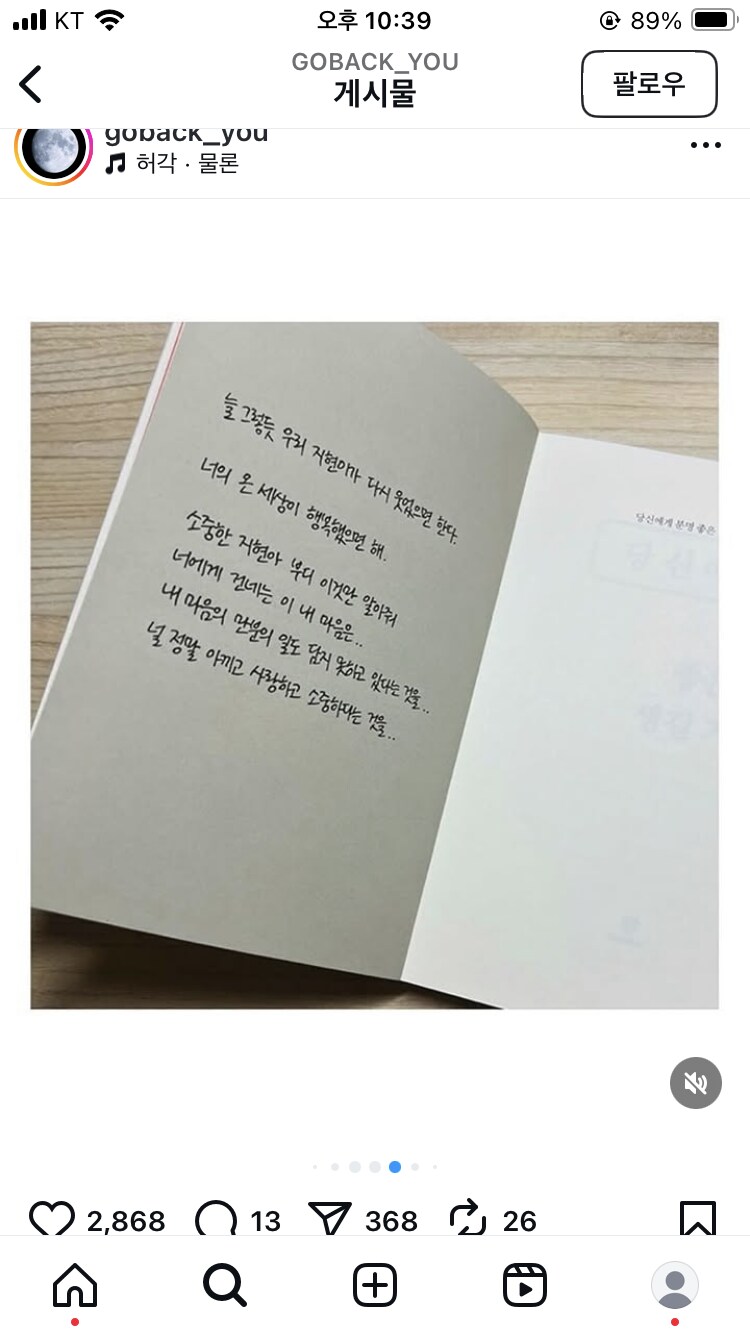 KT
오후 10:39
89%
GOBACK_YOU
게시물
팔로우
goback_you
허각 · 물론
늘 그렇듯 우리 지현이가 다시 웃었으면 한다.
너의 온 세상이 행복했으면 해.
소중한 지현아 부디 이것만 알아줘
너에게 건네는 이 내 마음은..
내 마음의 만분의 일도 담지 못하고 있다는 것을..
널 정말 아끼고 사랑하고 소중하다는 것을..
당신에게 분명 좋은
2,868
13
368
26